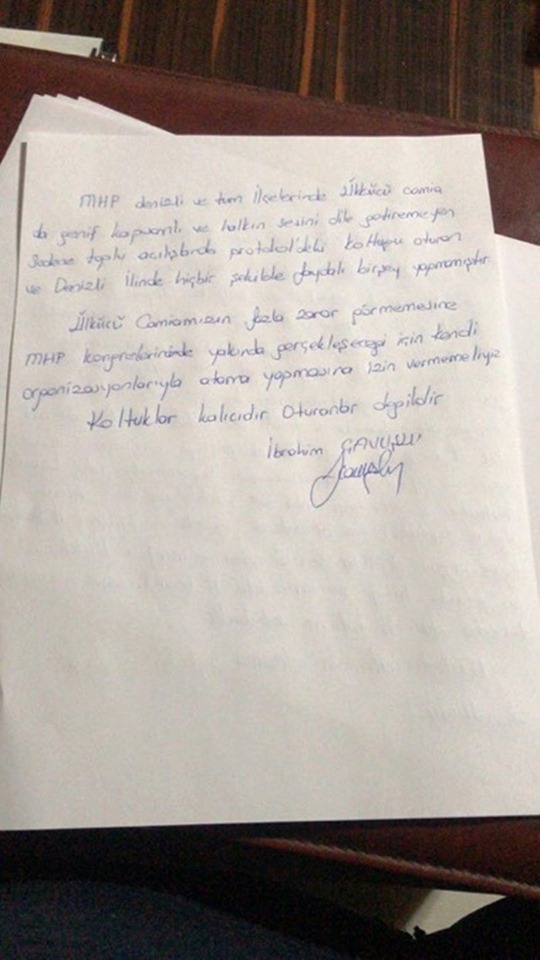 MHP denizli ve tüm ilçelerinde Ülkücü camia
da geniş kapsamlı ve halkın sesini dile getiremeyen
Sadece toplu açılışlarda protokol'deki koltuğu oturan
ve Denizli İlinde hiçbir şekilde faydalı birşey yapmamıştır
Ülkücü Camiamızın fazla zarar görmemesine
MHP kongrelerininde yakında gerçekleşeceği için kendi
organizasyonlarıyla atama yapmasına izin vermemeliyiz
Koltuklar kalıcıdır Oturanlar değildir
İbrahim